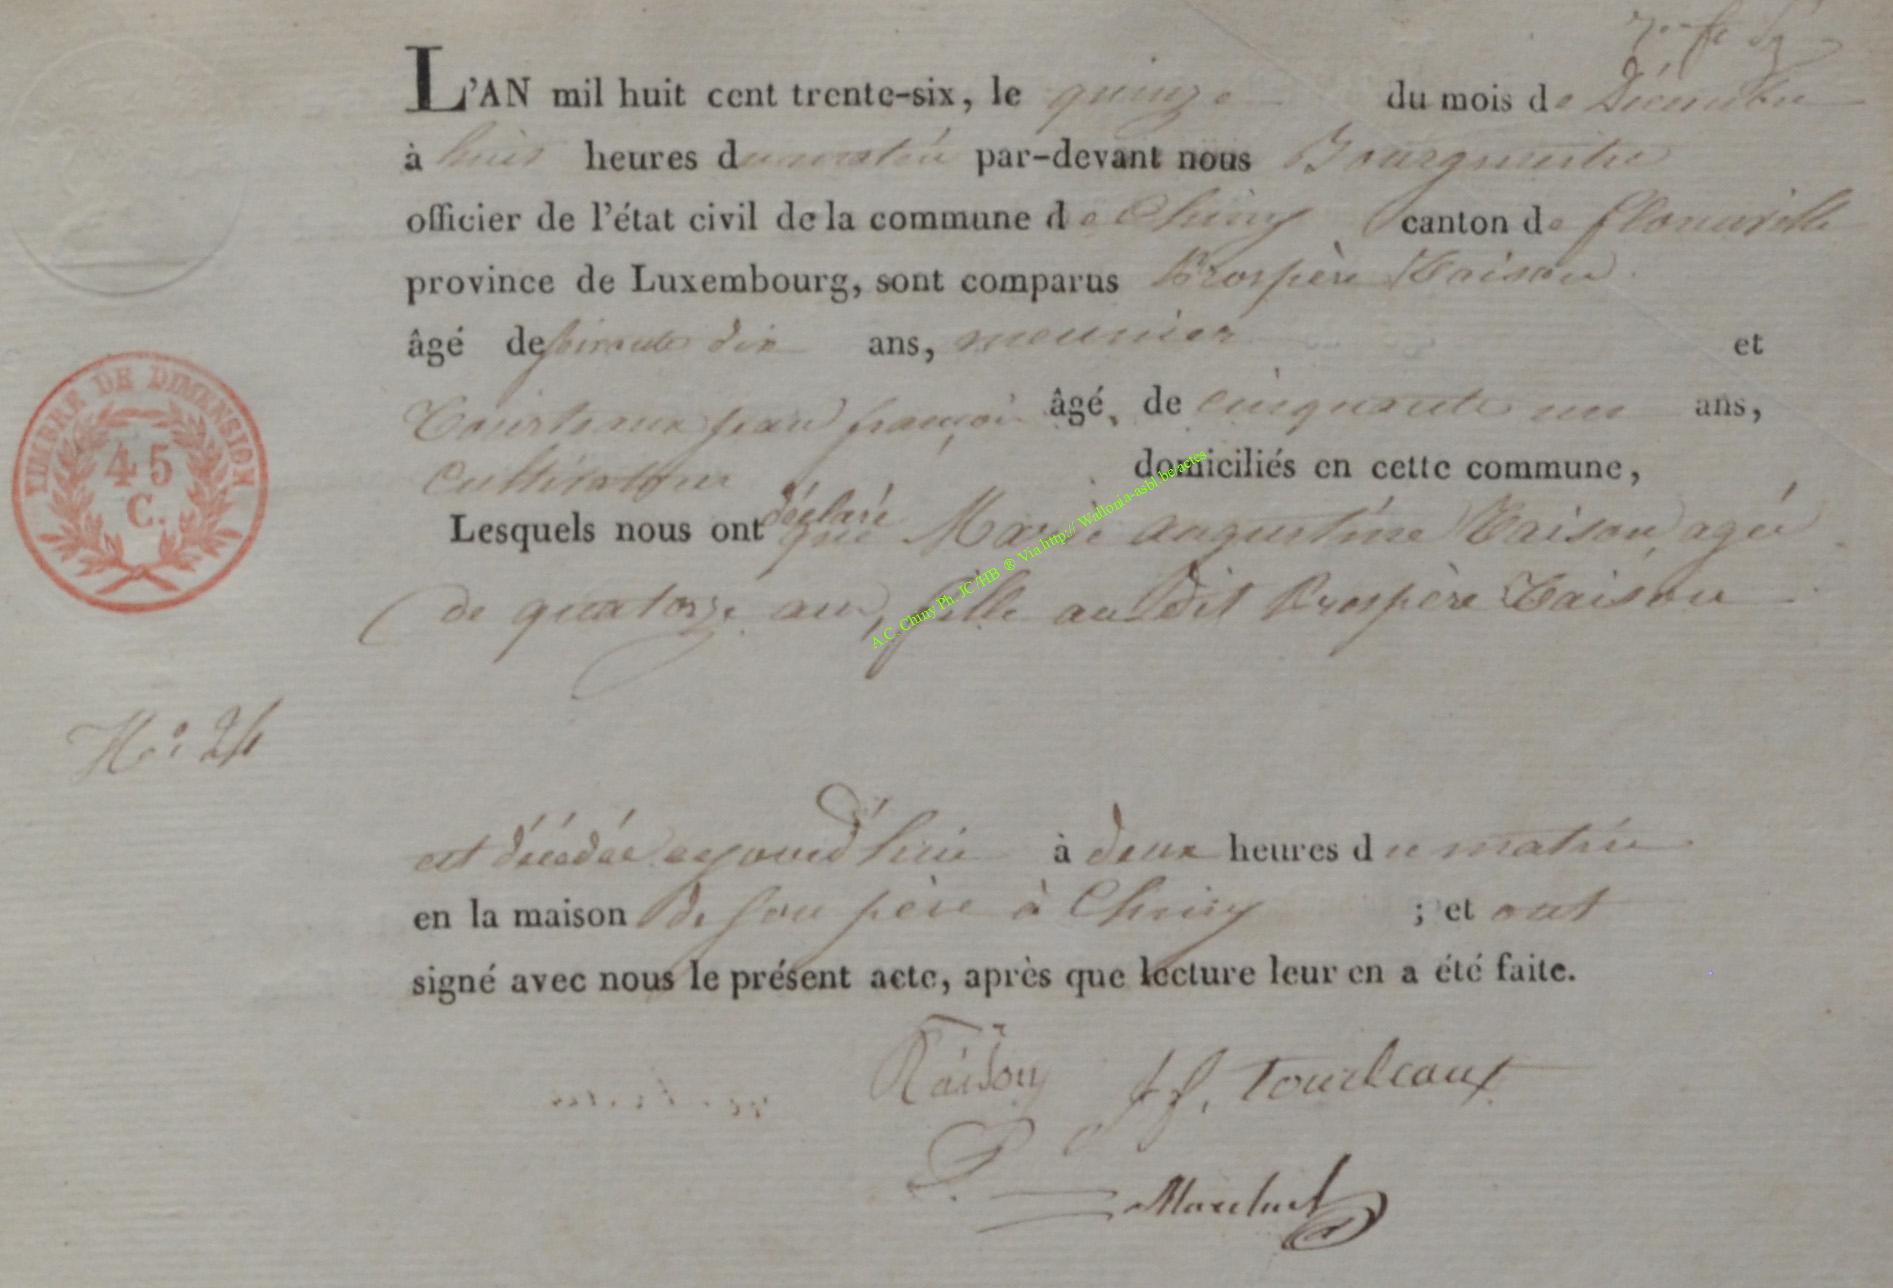 L'AN mil huit cent trente-six, le quinze du mois de Décembre
à huit heures du matin par-devant nous Bourgmestre
officier de l'état civil de la commune de Chiny canton de florenville
province de Luxembourg, sont comparus Prospère Raison
âgé de soixante dix ans, meunier et
Tourteaux jean françois âgé de cinquante un ans,
Cultivateur domiciliés en cette commune,
Lesquels nous ont déclaré que Marie augustine Raison, agée
de quatorze ans, fille au dit Prospère Raison
TIMBRE DE DIMENSION
45
C.
A.C. Chiny Ph. JC/HB ® Via http:// Wallonia-asbl.be actes
No. 24
est décédée aujourd'hui à deux heures du matin
en la maison de son père à Chiny ; et ont
signé avec nous le présent acte, après que lecture leur en a été faite.
Raison J f. Tourteaux